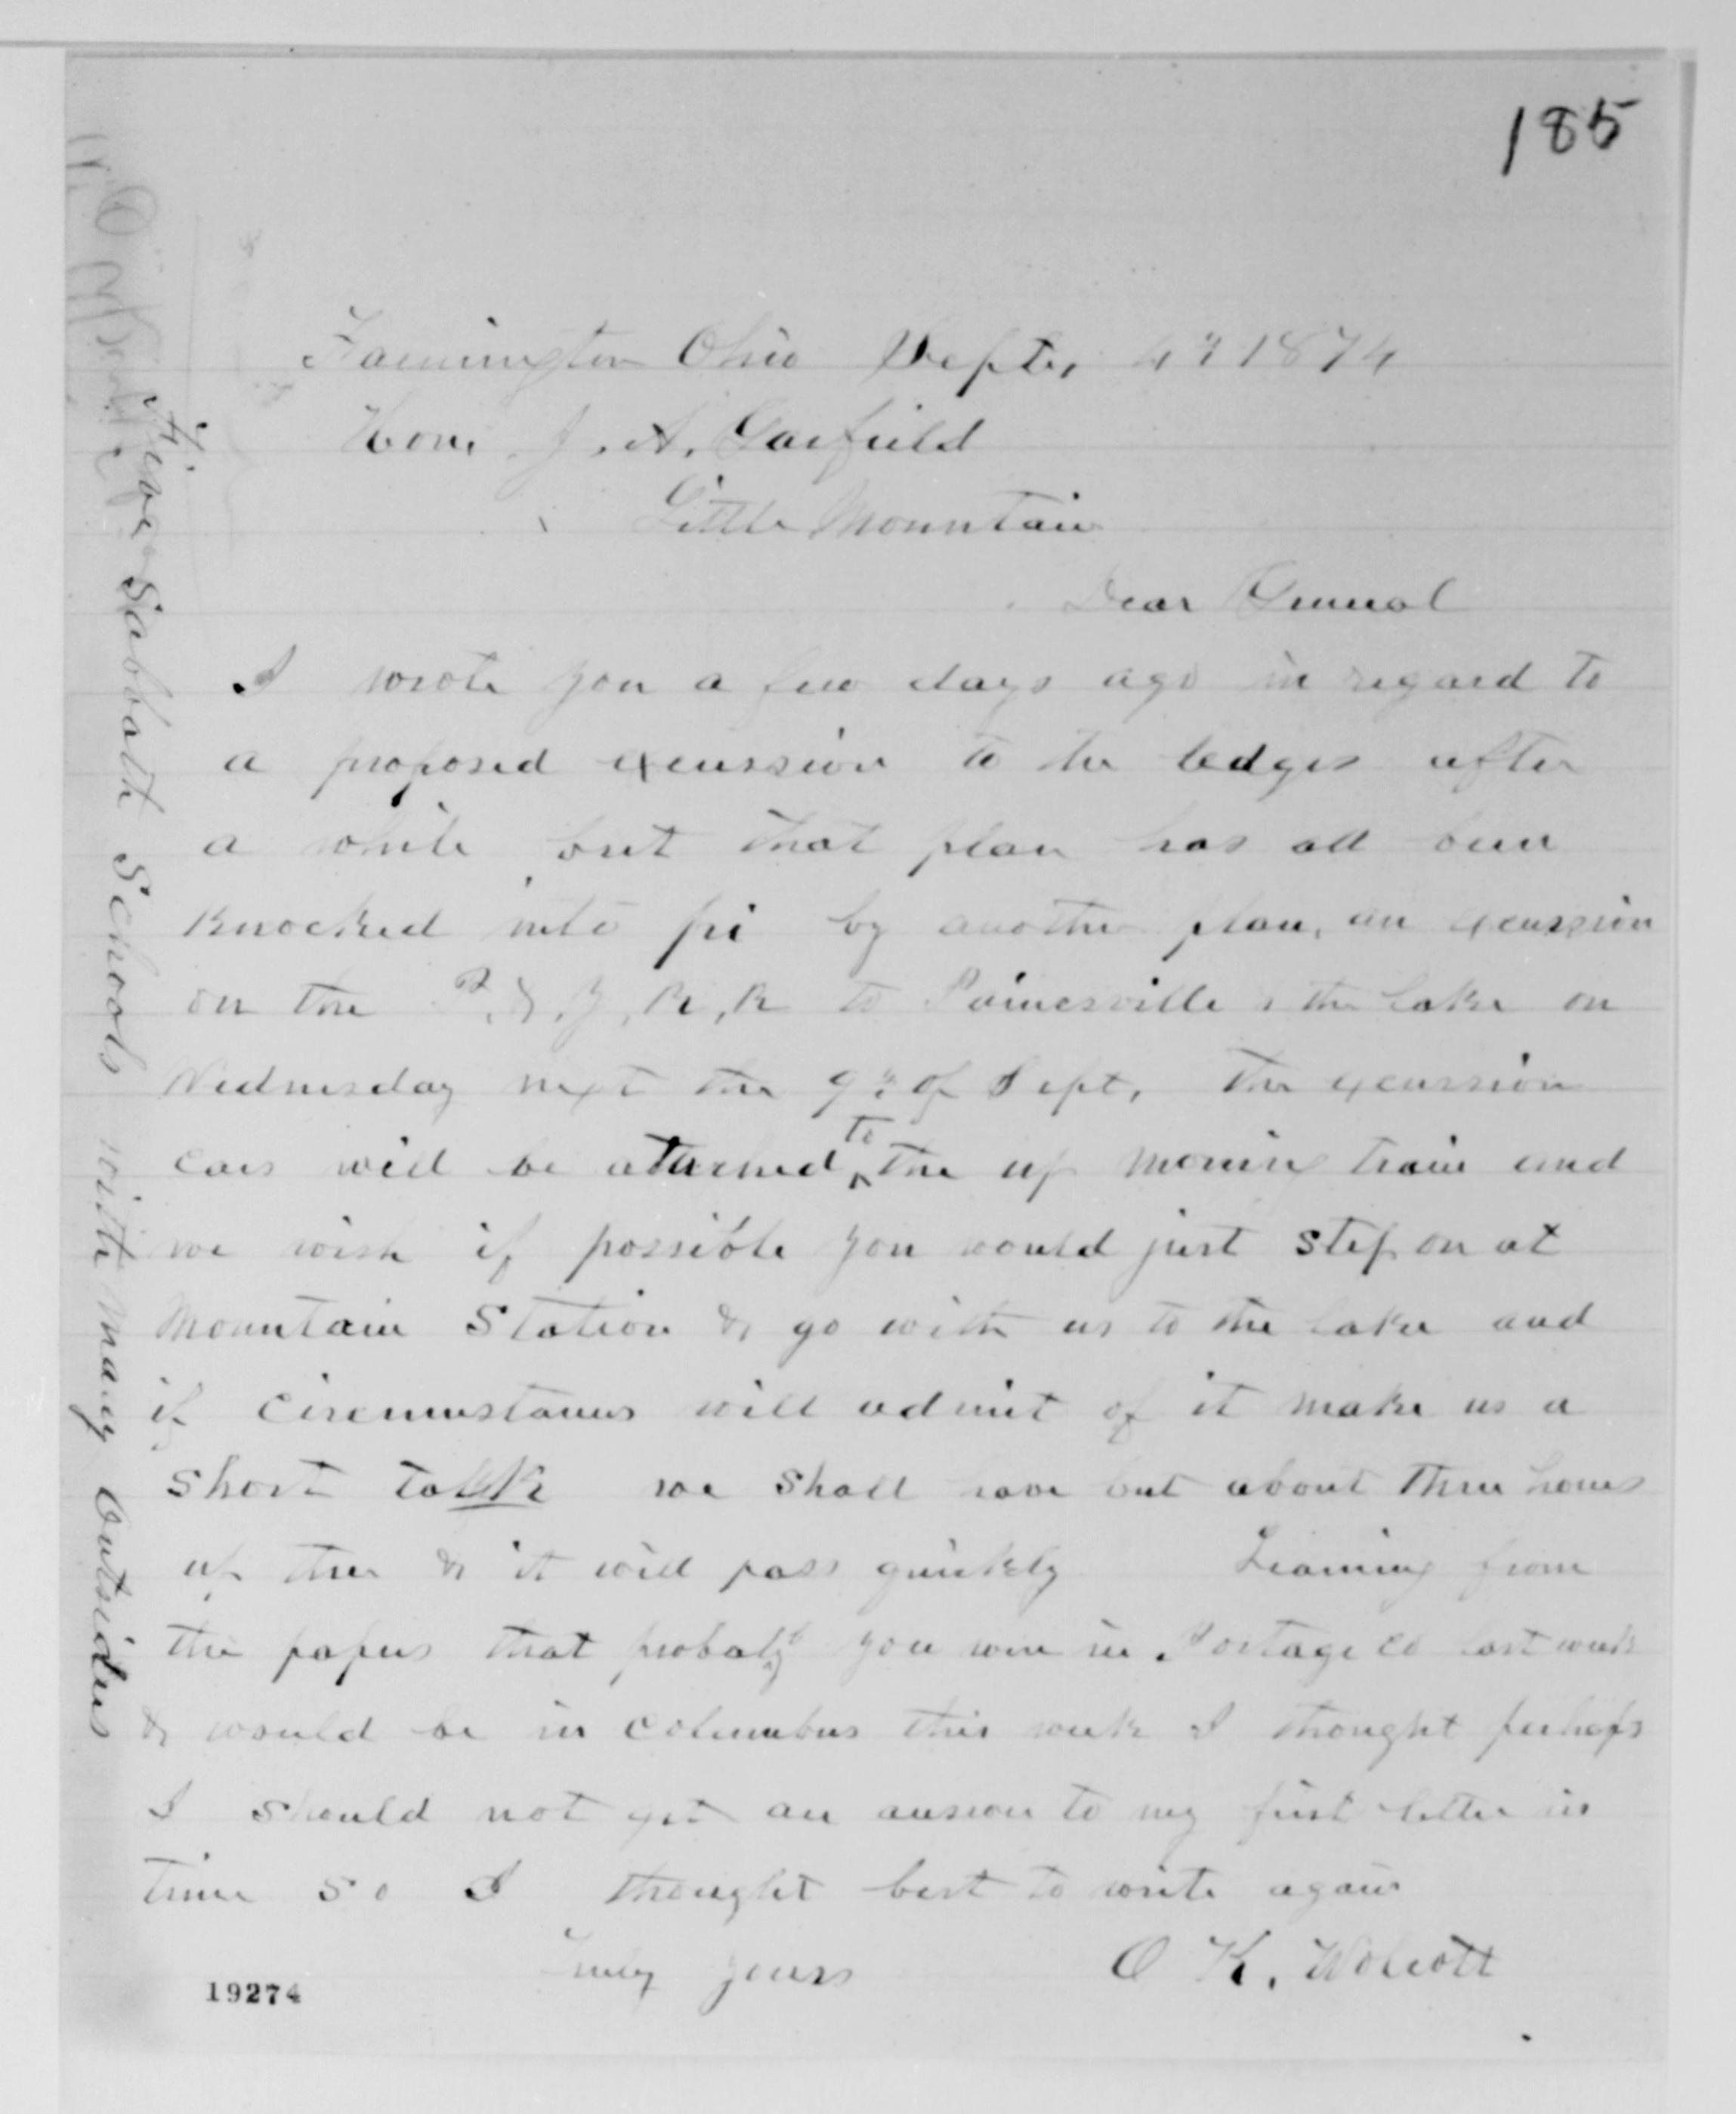 185
Farmington Ohio Septr, 4th 1874
Hon. J. A. Garfield
Little Mountain
Dear General
I wrote you a few days ago in regard to
a proposed excurssion to the ledges after
a while but that plan has all been
knocked into pi by another plan, an excurssion
on the P. & Y, R, R to Painesville & the Lake on
Wednesday next the 9th of Sept, The excurssion
cars will be attached to the up morning train and
we wish if possible you would just step on at
Mountain Station & go with us to the Lake and
if circumstances will admit of it make us a
short talk we shall have but about three hours
up there & it will pass quickly Learning from
the papers that probably you were in Portage Co last week
& would be in Columbus this week I thought perhaps
I should not get an answer to my first letter in
time so I thought best to write again
Truly yours O K. Wolcott
19274
Five Sabbath Schools with many outsiders